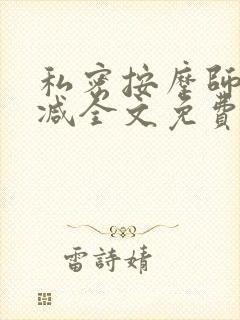 私密按摩師
减全文免費
雷詩婧